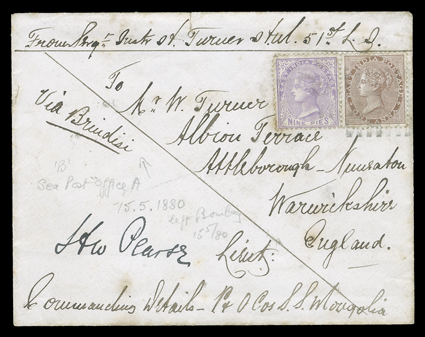 From Sergt Instr W. Turner 51st L.I.
To
Mr W. Turner
Albion Terrace
Attleborough - Nuneaton
Warwickshire
England.
Via Brindisi
EAST INDIA POSTAGE
NINE PIES
EAST INDIA POSTAGE
ONE ANNA
B
Sea Post Office A
15.5.1880
left Bombay
15/5/80
H W Pearse Lieut:
Commanding Details - P & O Cos S.S. Mongolia